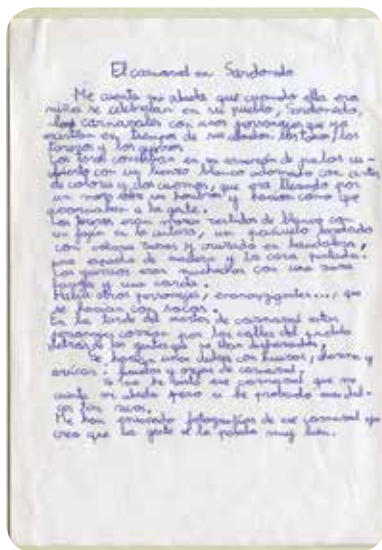 El carnaval en Sardonedo
Me cuenta mi abuela que cuando ella era
niña se celebraban en su pueblo, Sardonedo,
los carnavales con unos personajes que ya
existían en tiempos de sus abuelos: los toros, los
toreros y los guirrios.
Los toros consistían en un armazón de palos cu-
bierto con un lienzo blanco adornado con cintas
de colores y dos cuernos, que era llevado por
un mozo sobre sus hombros y hacían como que
a la gente.
Los toreros eran mozos vestidos de blanco con
un fajín en la cintura, un pañuelo bordado
con colores y cruzado en bandolera,
una espada de madera y la cara pintada.
Los guirrios eran muchachos con una
y una
Había otros personajes, ..., que
se hacían con sacos.
En la tarde del martes de carnaval estos
personajes corrían por las calles del pueblo
detrás de las gentes
Se hacían unos dulces con huevos, harina y
azúcar: y orejas de carnaval.
Yo no he visto ese carnaval que me
cuenta mi abuela pero si he probado esos dul-
ces tan ricos.
Me han enseñado fotografías de ese carnaval y
creo que la gente se lo pasaba muy bien.